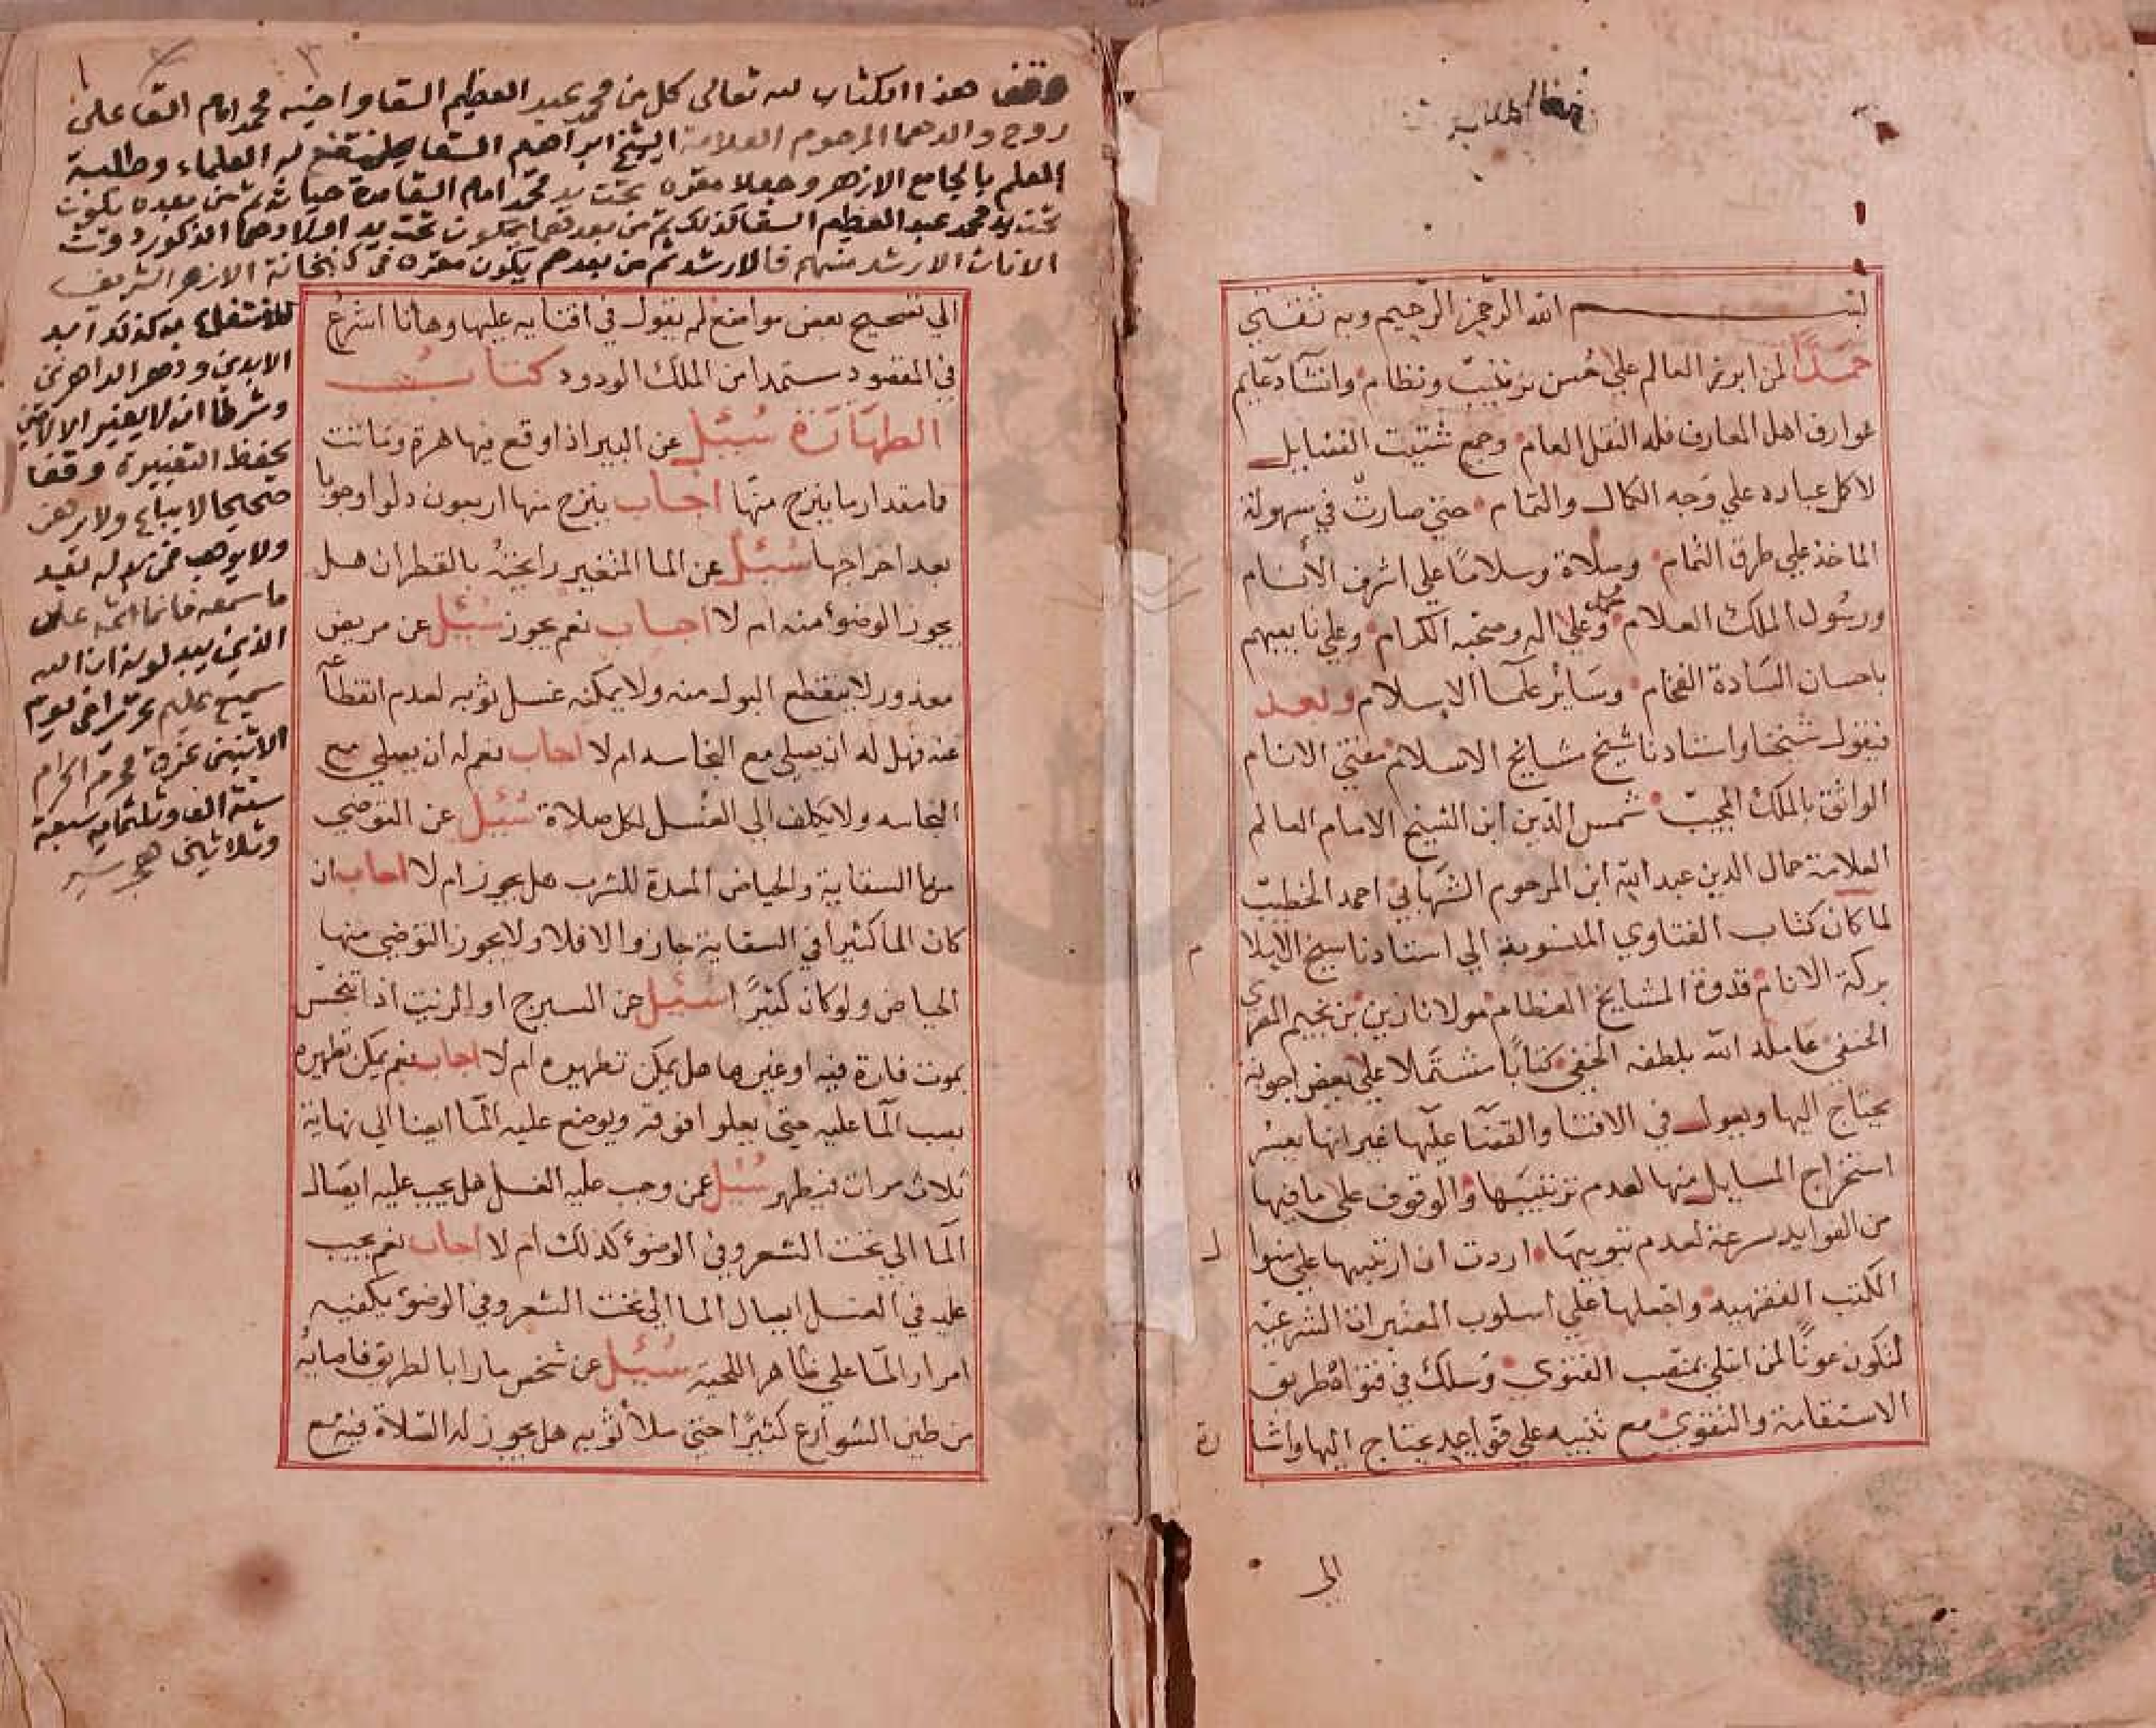 بسم الله الرحمن الرحيم وبه ثقتي
حمدا لمن ابرز العالم على احسن ترتيب ونظام وانشأ دعايم
عوارف اهل المعارف فله الفضل العام وجمع شتيت الفضايل
لاكل عباده علي وجه الكمال والتمام حتي صارت في سهولة
الماخذ علي طرق الثمام وصلاة وسلاما علي اشرف الأنام
ورسول الملك العلام محمد وعلي اله وصحبه الكرام وعلي تابعيهم
باحسان السادة الفخام وسائر علما الاسلام وبعد
فيقول شيخنا واستادنا شيخ مشايخ الاسلام مفتي الانام
الواثق بالملك المجيب شمس الدين ابن الشيخ الامام العالم
العلامة جمال الدين عبد الله ابن المرحوم الشهابي احمد الخطيب
لما كان كتاب الفتاوي المنسوبة الي استادنا شيخ الاسلا م
بركة الانام قدوة المشايخ العظام مولانا زين بن نجيم المصري
الحنفي عامله الله بلطفه الخفي كتابا مشتملا علي بعض اجوبة
يحتاج اليها ويعول في الافتا والقضا عليها غير انها يعسر
استخراج المسايل منها لعدم ترتيبها والوقوف علي ما فيها
من الفوايد سرعة لعدم تبويبها اردت ان ارتبها علي منوا ل
الكتب الفقهيه واجعلها علي اسلوب المعتبرات الشرعيه
لتكون عونا لمن ابتلي بمنصب الفتوي وسلك في فتواه طريق
الاستقامة والتقوي مع تنبيه علي قواعد يحتاج اليها واشا رة
الي
وقف هذا الكتاب لله تعالى كل من محمد عبد العظيم السقا واخيه محمد امام السقا على
روح والدهما المرحوم العلامة الشيخ ابراهيم السقا لينتفع به العلماء وطلبة
العلم بالجامع الازهر وجعلا مقره تحت يد محمد امام السقا مدة حياته ثم من بعده يكون
تحت يد محمد عبد العظيم السقا كذلك ثم من بعدهما يكون تحت يد اولادهما الذكور دون
الاناث الارشد منهم فالارشد ثم من بعدهم يكون مقره في كتبخانة الازهر الشريف
للانتفاع به كذلك ابد
الابدين ودهر الداهرين
وشرطا ان لا يغير الا لامين
بحفظ التغييرة وقفا
صحيحا لا يباع ولا يرهن
ولا يوهب فمن بدله بعد
ما سمعه فانما اثمه على
الذين يبدلونه ان الله
سميع عليم تحريرا في يوم
الاثنين غرة محرم الحرام
سنة الف وثلثماية سبعة
وثلاثين هجرية
الي تصحيح بعض مواضع لم يقول في افتايه عليها وها انا اشرع
في المقصود مستمدا من الملك الودود كتاب
الطهارة سئل عن البير اذا وقع فيها هرة وماتت
فما مقدار ما ينزح منها اجاب ينزح منها اربعون دلوا وجوبا
بعد اخراجها سئل عن الما المتغير رايحته بالقطران هل
يجوز الوضوء منه ام لا اجاب نعم يجوز سئل عن مريض
معذور لا ينقطع البول منه ولا يمكنه غسل ثوبه لعدم انقطاعه
عنه فهل له ان يصلي مع النجاسه ام لا اجاب نعم له ان يصلي مع
النجاسه ولا يكلف الي الغسل لكل صلاة سئل عن التوضي
من السقاية والحياض المعدة للشرب هل يجوز ام لا اجاب ان
كان الما كثيرا في السقاية جاز والا فلا ولا يجوز التوضي منها
الحياض ولو كان كثيرا سئل عن السيرج او الزيت اذا تنجس
بموت فارة فيه او غيرها هل يمكن تطهيره ام لا اجاب نعم يمكن تطهيره
بصب الما عليه حتى يعلوا فوقه ويوضع عليه الما ايضا الي نهاية
ثلاث مرات فيطهر سئل عن وجب عليه الغسل هل يجب عليه ايصال
الما الي تحت الشعر وفي الوضوء كذلك ام لا اجاب نعم يجب
عليه في الغسل ايصال الما الي تحت الشعر وفي الوضوء يكفيه
امرار الما علي ظاهر اللحية سئل عن شخص مارا بالطريق فاصابه
من طين الشوارع كثيرا حتي ملأ ثوبه هل يجوز له الصلاة فيه مع